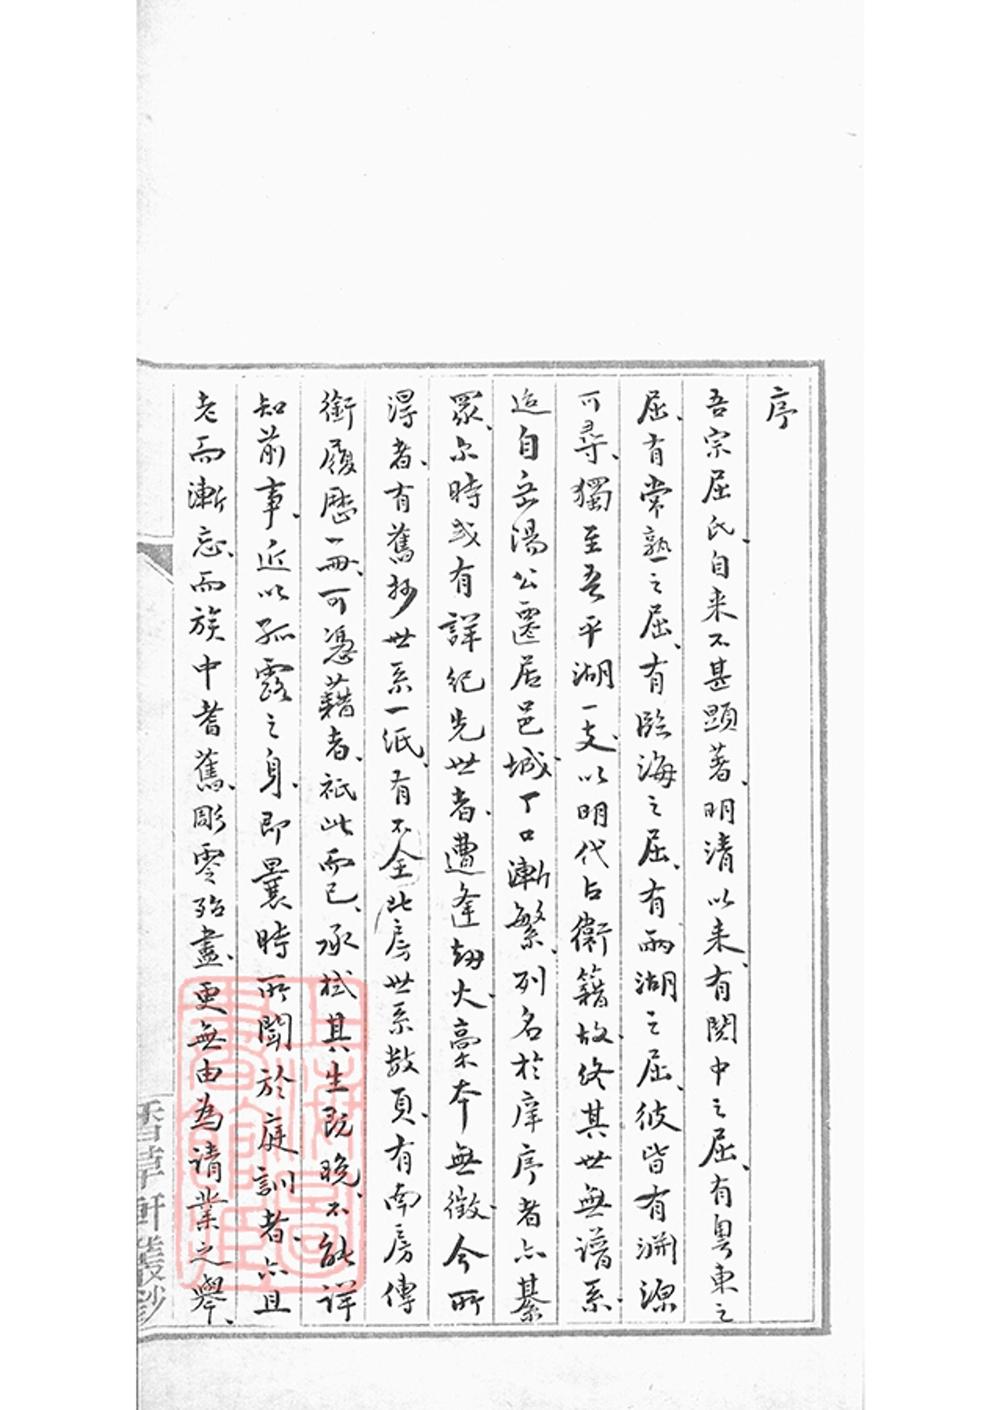 序
吾宗屈氏、自来不甚顕著、明清以来、有関中之屈、有粤東之
屈、有常熟之屈、有臨海之屈、有兩湖之屈、彼皆有淵源
可尋、獨至吾平湖一支、以明代占衛籍、故終其世無譜系、
迨自岳陽公遷居邑城、丁口漸繁、列名於庠序者亦綦
眾、尔時或有詳紀先世者、遭逢劫火、稾本無徵、今所
得者、有舊抄世系一紙、有不全此房世系散頁、有南房傳
銜履歷一冊、可憑藉者、祇此而已、承栻其生既晚、不能詳
知前事、近以孤露之身、即曩時所聞於庭訓者、亦且
老而漸忘、而族中耆舊、彫零殆盡、更無由為請業之舉、
香草軒叢鈔